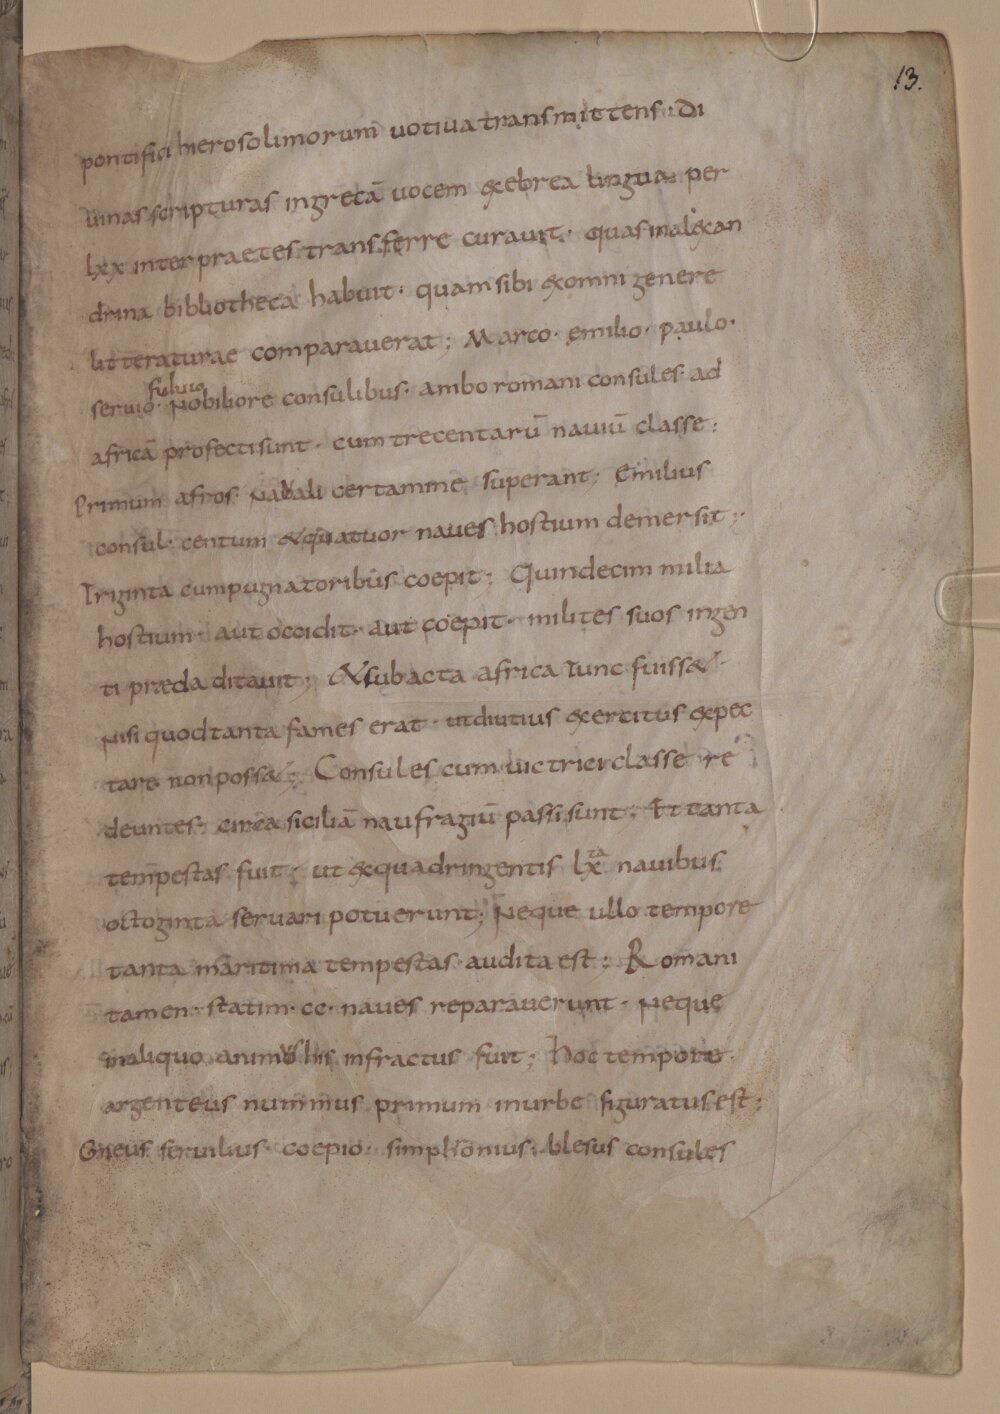 13.
pontifici hierosolimorum uotiua transmittens · Di
uinas scripturas ingrecā uocem & ebrea lingua per
lxx interpraetes transferre curauit · quas inalexan
drina bibliotheca habuit · quam sibi exomni genere
litteraturae comparauerat ; Marco · emilio · paulo ·
fuluio
seruio · Nobiliore consulibus · ambo romani consules · ad
africā profecti sunt · cum trecentarū nauiū classe ;
Primum afros · Nauali certamine superant ; Emilius
consul · centum &quatuor naues hostium demersit ;
Triginta cumpugnatoribus coepit ; Quindecim milia
hostium · aut occidit · aut coepit · milites suos ingen
ti præda ditauit ; &subacta africa tunc fuiss& ·
Nisi quod tanta fames erat · ut diutius exercitus expec
tare non poss& ; Consules cum uictrici classe re
deuntes · circa siciliā naufragiū passi sunt ; Et tanta
tempestas fuit · ut exquadringentis lx ta nauibus
octoginta seruari potuerunt ; Neque ullo tempore
tanta maritima tempestas audita est ; Romani
tamen · statim · cc · naues reparauerunt · Neque
inaliquo animus his infractus fuit ; hoc tempore ·
argenteus nummus primum inurbe figuratus est ;
Gneus seruilius · coepio · simpronius · blesus consules